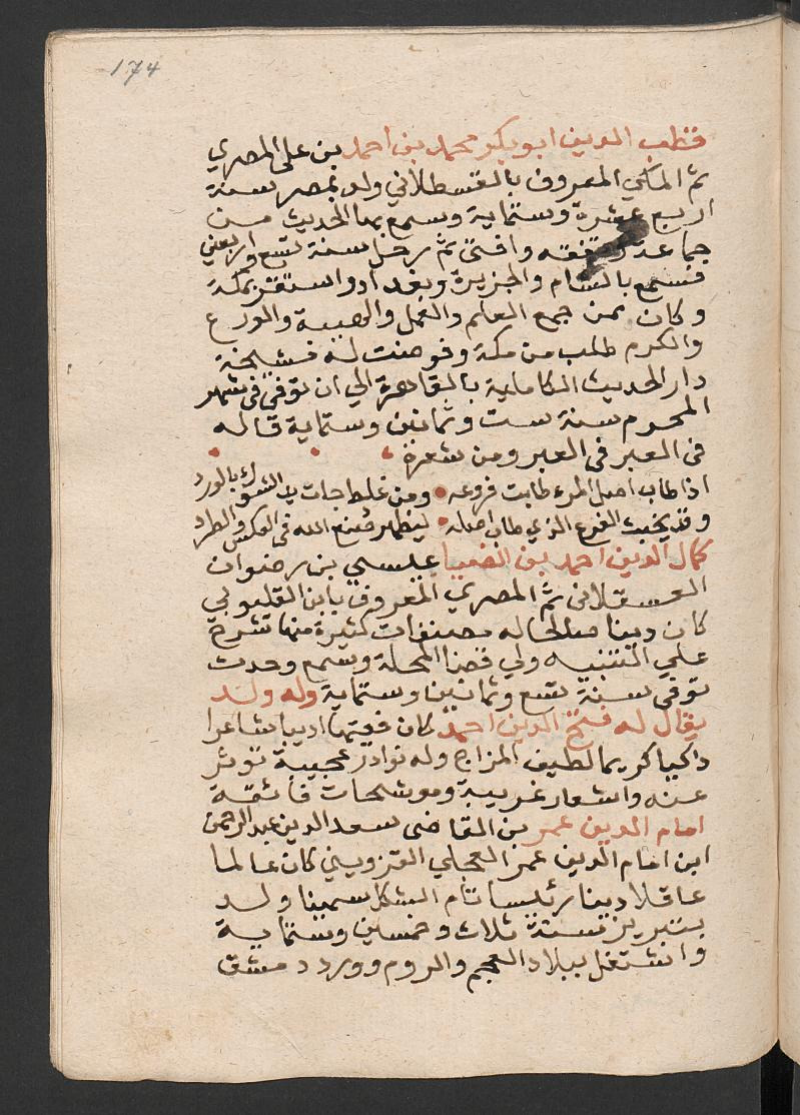 174
قطب الدين ابو بكر محمد بن احمد بن على المصري
ثم المكي المعروف بالقسطلاني ولد بمصر سنة
اربع عشرة وستماية وسمع بها الحديث من
جماعة وتفقه وافتى ثم رحل سنة تسع واربعين
فسمع بالشام والجزيرة وبغداد واستقر بمكة
وكان ممن جمع العلم والعمل والهيبة والورع
والكرم طلب من مكة وفوضت له مشيخة
دار الحديث الكاملية بالقاهرة الي ان توفي في شهر
المحرم سنة ست وثمانين وستماية قاله
في العبر في العبر ومن شعره
اذا طاب اصل المرء طابت فروعه ومن غلط جات يد الشوك بالورد
وقد يخبث الفرع الذي طاب اصله ليظهر صنع الله في العكس والطرد
كمال الدين احمد بن الضيا عيسي بن رضوان
العسقلاني ثم المصري المعروف بابن القليوبي
كان دينا صالحا له مصنفات كثيرة منها شرح
علي التنبيه ولي قضا المحلة وسمع وحدث
توفي سنة تسع وثمانين وستماية وله ولد
يقال له فتح الدين احمد كان فقيها اديبا شاعرا
داكيا كريما لطيف المزاج وله نوادر عجيبة تؤثر
عنه واشعار غريبة وموشحات فائقة
امام الدين عمر بن القاضى سعد الدين عبد الرحمن
ابن امام الدين عمر العجلي القزويني كان عالما
عاقلا دينا رئيسا تام الشكل سمينا ولد
بتبريز سنة ثلاث وخمسين وستماية
واشتغل ببلاد العجم والروم وورد دمشق